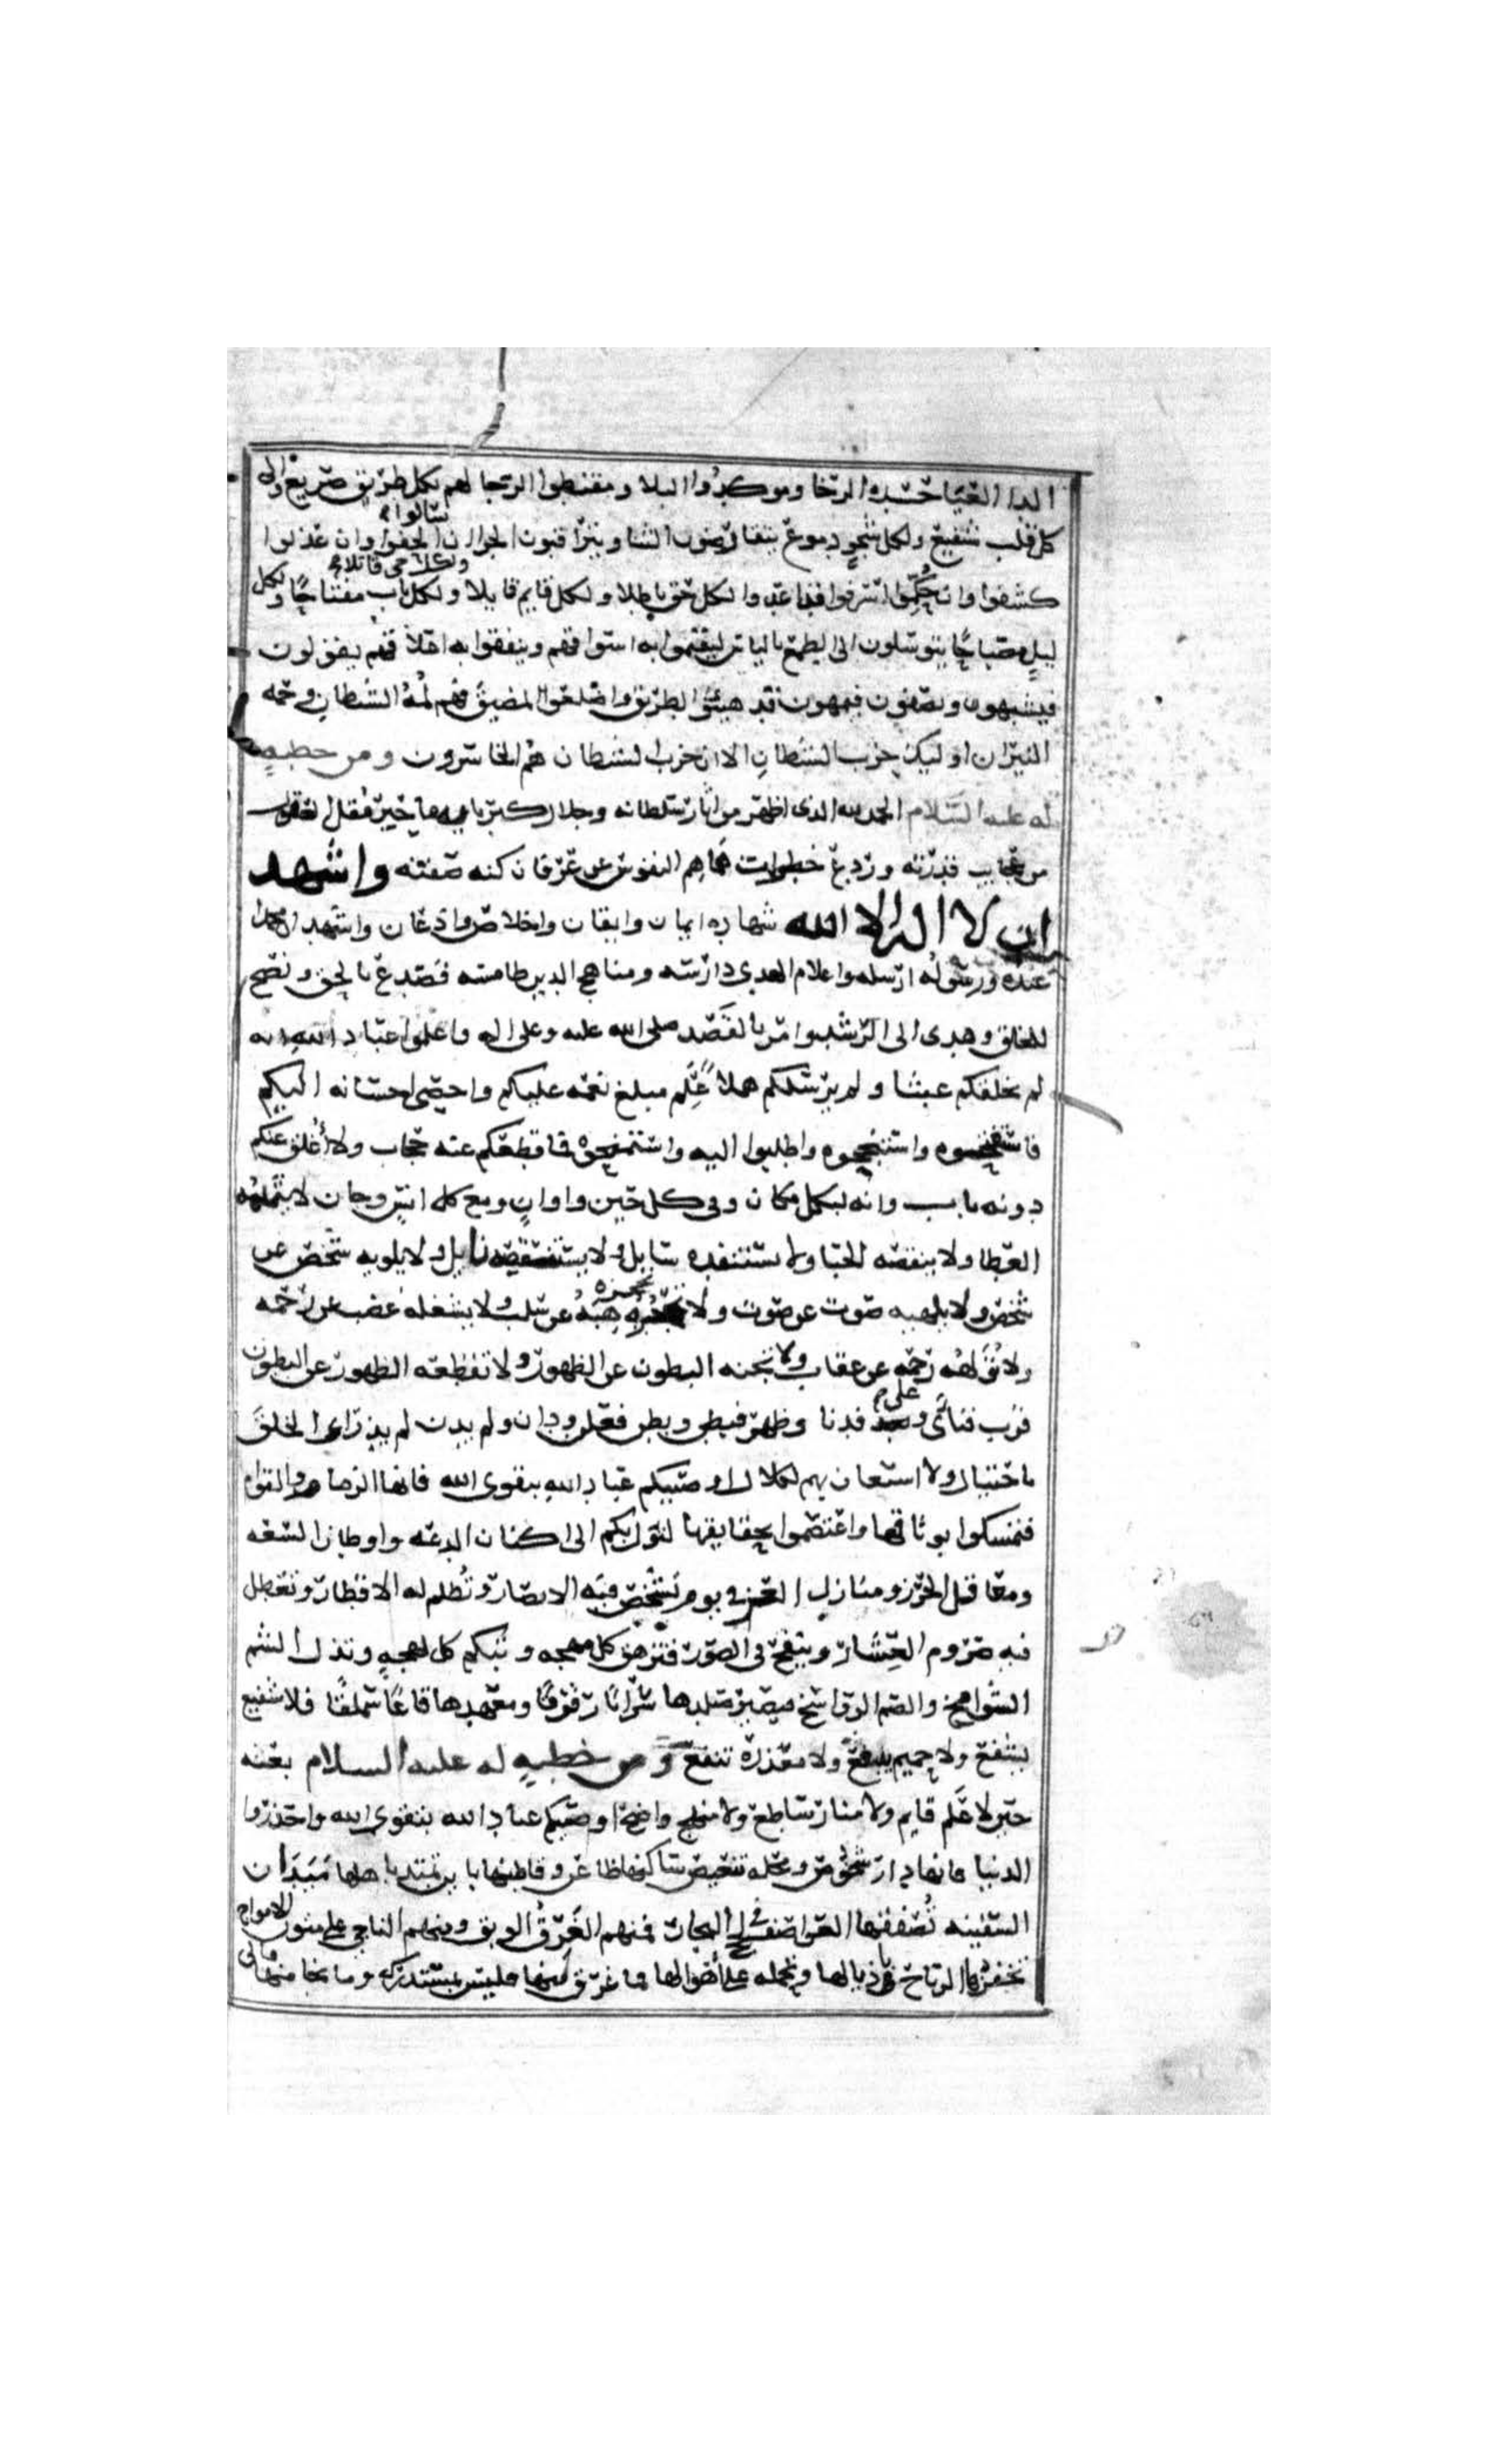 الداء العيا حسده الرخا وموكدوا البلا ومقنطوا الرجا لهم بكل طريق صريع والى
كل قلب شفيع ولكل شجو دموع يتقارضون الثنا ويتراقبون الجزا ان سالوا الحفوا وان عذلوا
كشفوا وان حكموا اسرفوا قد اعدوا لكل حق باطلا ولكل قايم مايلا ولكل حي قاتلا ولكل باب مفتاحا ولكل
ليل مصباحا يتوسلون الى الطمع بالياس ليقيموا به اسواقهم وينفقوا به اعلاقهم يقولون
فيشبهون ويصفون فيموهون قد هيئوا الطريق واضلعوا المضيق فهم لمه الشيطان وحمه
النيران اوليك حزب الشيطان الا ان حزب الشيطان هم الخاسرون ومن خطبه
له عليه السلام الحمد لله الذى اظهر من اثار سلطانه وجلال كبريايه ما حير مقل العقول
من عجايب قدرته وردع خطرات هماهم النفوس عن عرفان كنه صفته واشهد
ان لا اله الا الله شهاده ايمان وايقان واخلاص واذعان واشهد ان محمدا
عبده ورسوله ارسله واعلام الهدى دارسه ومناهج الدين طامسه فصدع بالحق ونصح
للخلق وهدى الى الرشد وامر بالقصد صلى الله عليه وعلى اله واعلموا عباد الله انه
لم يخلقكم عبثا ولم يرسلكم هملا علم مبلغ نعمه عليكم واحصى احسانه اليكم
فاستفتحوه واستنجحوه واطلبوا اليه واستمنحوه فما قطعكم عنه حجاب ولا اغلق عنكم
دونه باب وانه لبكل مكان وفى كل حين واوان ومع كل انس وجان لا يثلمه
العطا ولا ينقصه الحبا ولا يستنفده سايل ولا يستقصيه نايل ولا يلويه شخص عن
شخص ولا يلهيه صوت عن صوت ولا تحجزه هبه عن سلب ولا يشغله غضب عن رحمه
ولا تولهه رحمه عن عقاب ولا يجنه البطون عن الظهور ولا تقطعه الظهور عن البطون
قرب فنأى وعلى فدنا وظهر فبطن وبطن فعلن ودان ولم يدن لم يذراء الخلق
باحتيال ولا استعان بهم لكلال اوصيكم عباد الله بتقوى الله فانها الزمام والقوام
فتمسكوا بوثايقها واعتصموا بحقايقها تؤل بكم الى اكنان الدعه واوطان السعه
ومعاقل الحرز ومنازل العز فى يوم تشخص فيه الابصار وتظلم له الاقطار وتعطل
فيه صروم العشار وينفخ فى الصور فتزهق كل مهجه وتبكم كل لهجه وتذل الشم
الشوامخ والصم الرواسخ فيصير صلدها سرابا رقرقا ومعهدها قاعا سملقا فلا شفيع
يشفع ولا حميم يدفع ولا معذره تنفع ومن خطبه له عليه السلام بعثه
حين لا علم قايم ولا منار ساطع ولا منهج واضح اوصيكم عباد الله بتقوى الله واحذروا
الدنيا فانها دار شخوص ومحله تنغيص ساكنها ظاعن وقاطنها باين تميد باهلها ميدان
السفينه تصفقها العواصف فى لجج البحار فمنهم الغرق الوبق ومنهم الناجى على متون الامواج
تحفزه الرياح باذيالها وتحمله على اهوالها فما غرق منها فليس بمستدرك وما نجا منها فالى